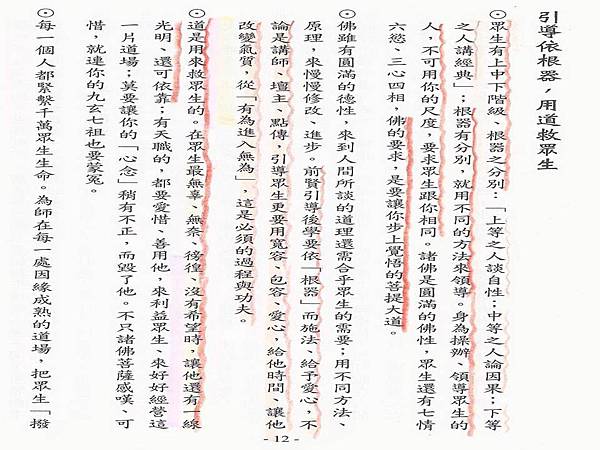 引導依根器，用道救眾生
⊙眾生有上中下階級、根器之分別：「上等之人談自性；中等之人論因果；下等
之人講經典」；根器有分別，就用不同的方法來領導。身為操辦、領導眾生的
人，不可用你的尺度，要求眾生跟你相同。諸佛是圓滿的佛性，眾生還有七情
六慾、三心四相，佛的要求，是要讓你步上覺悟的菩提大道。
⊙佛雖有圓滿的德性，來到人間所談的道理還需合乎眾生的需要；用不同方法、
原理，來慢慢修改、進步。前賢引導後學要依「根器」而施法、給予愛心，不
論是講師、壇主、點傳，引導眾生更要用寬容、包容、愛心，給他時間、讓他
改變氣質，從「有為進入無為」，這是必須的過程與功夫。
⊙道是用來救眾生的。在眾生最無辜、無奈、徬徨、沒有希望時，讓他還有一線
光明、還可依靠；有天職的，都要愛惜、善用他，來利益眾生、來好好經營這
一片道場；莫要讓你的「心念」稍有不正，而毀了他。不只諸佛菩薩感嘆、可
惜，就連你的九玄七祖也要蒙冤。
⊙每一個人都緊繫千萬眾生生命。為師在每一處因緣成熟的道場，把眾生「撥
- 12 -